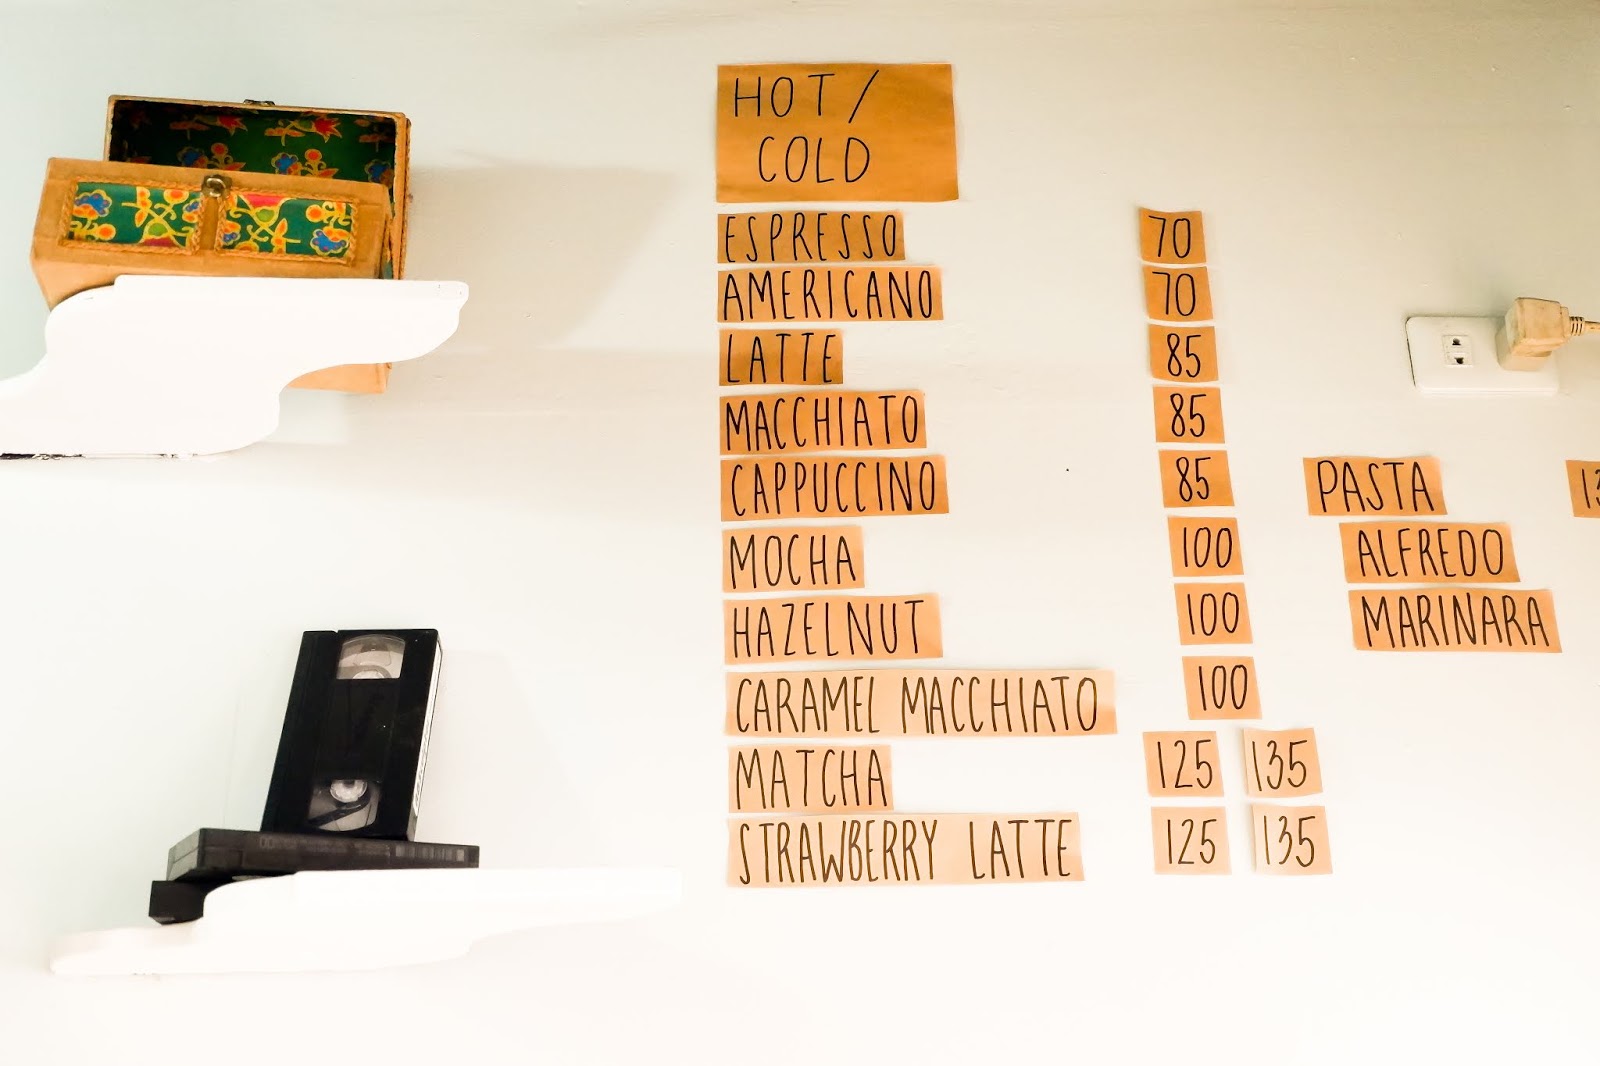 HOT /
COLD
ESPRESSO 70
AMERICANO 70
LATTE 85
MACCHIATO 85
CAPPUCCINO 85
MOCHA 100
HAZELNUT 100
CARAMEL MACCHIATO 100
MATCHA 125 135
STRAWBERRY LATTE 125 135
PASTA
ALFREDO
MARINARA